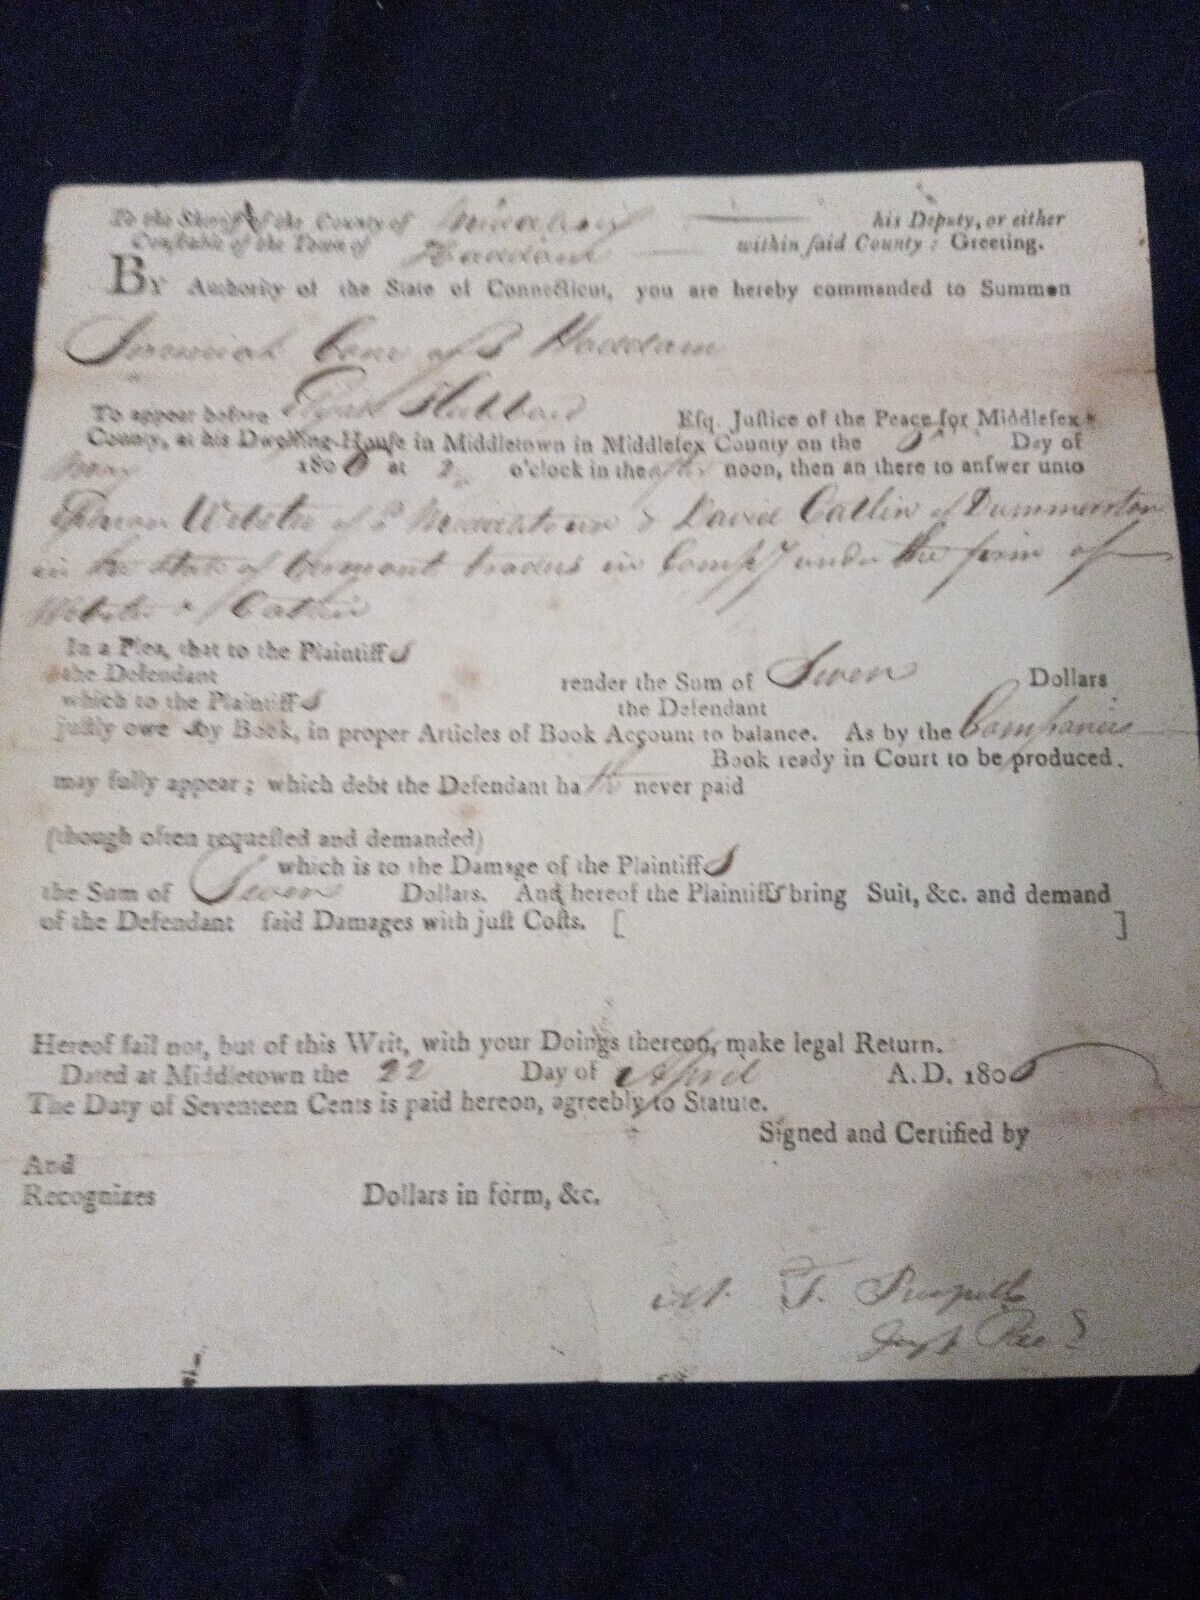 To the Sheriff of the County of Middlesex his Deputy, or either
Constable of the Town of Haddam within ſaid County: Greeting.
BY Authority of the State of Connecticut, you are hereby commanded to Summon
Jeremiah of Haddam
To appear before Hubbard Eſq. Juſtice of the Peace for Middleſex
County, at his Dwelling-Houſe in Middletown in Middleſex County on the 5th Day of
May 1806 at 2 o'clock in the after noon, then an there to anſwer unto
Webster of Middletown & David Catlin of Dummerston
in the state of Vermont traders in Compy under the firm of
Webster & Catlin
In a Plea, that to the Plaintiffs
the Defendant render the Sum of Seven Dollars
which to the Plaintiffs the Defendant
juſtly owe by Book, in proper Articles of Book Account to balance. As by the Companies
Book ready in Court to be produced.
may fully appear; which debt the Defendant hath never paid
(though often requeſted and demanded)
which is to the Damage of the Plaintiffs
the Sum of Seven Dollars. And hereof the Plaintiffs bring Suit, &c. and demand
of the Defendant ſaid Damages with juſt Coſts. [ ]
Hereof fail not, but of this Writ, with your Doings thereon, make legal Return.
Dated at Middletown the 22 Day of April A.D. 1806
The Duty of Seventeen Cents is paid hereon, agreebly to Statute.
Signed and Certified by
And
Recognizes Dollars in form, &c.
T.